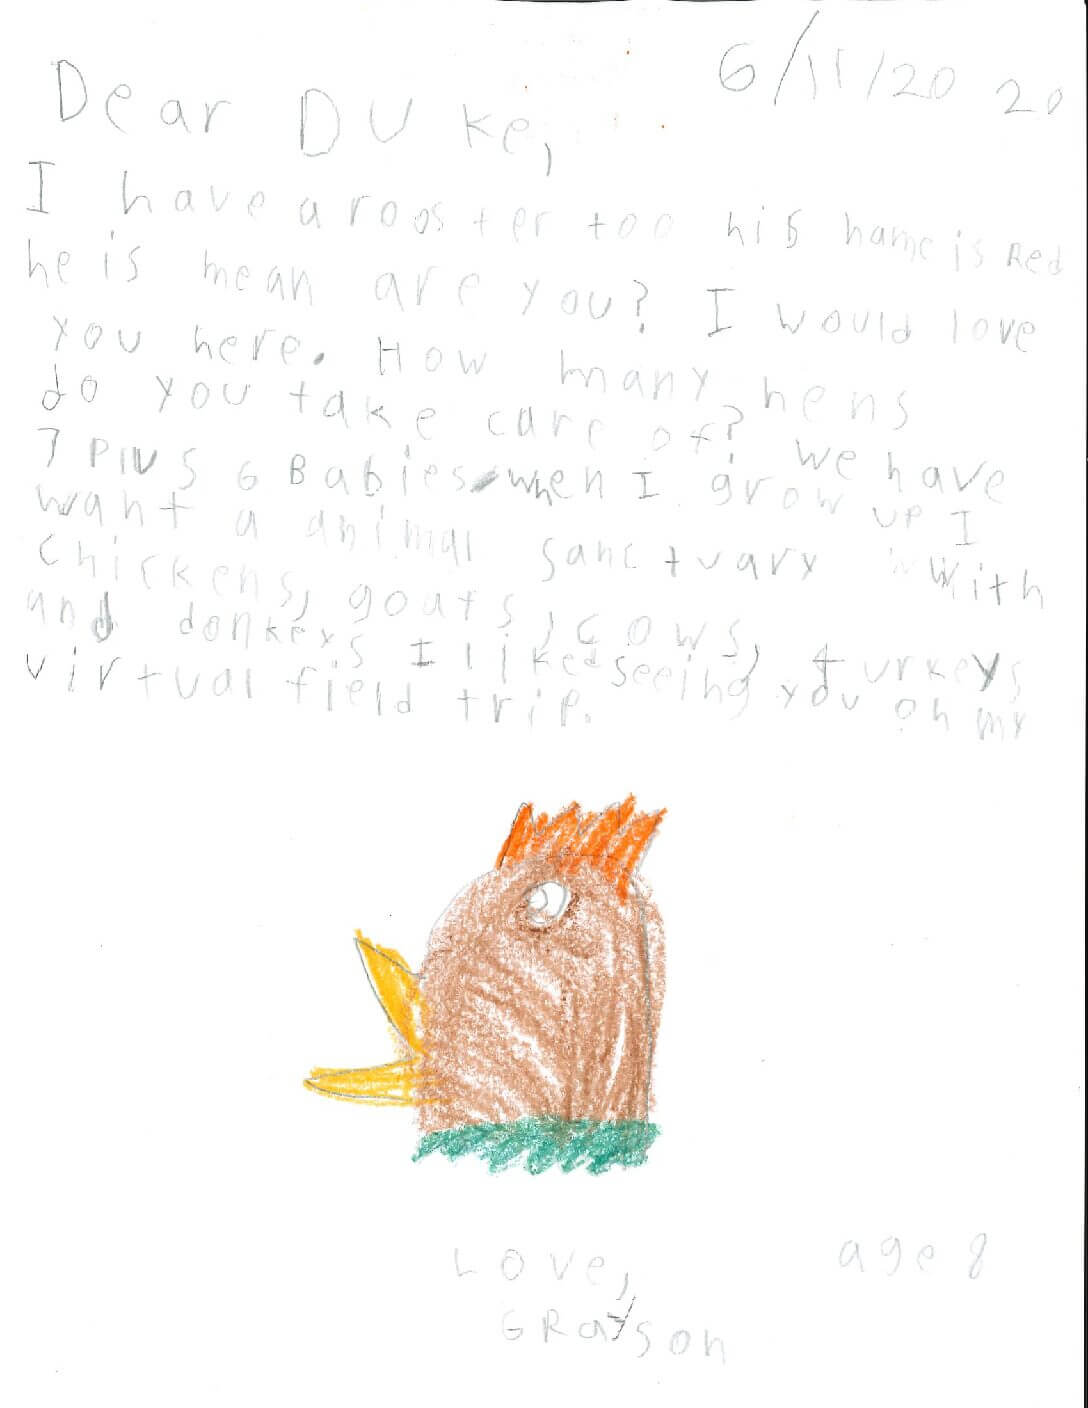 6/11/20 20
Dear DUke,
I have a rooster too his name is Red
he is mean are you? I would love
you here. How many hens
do you take care of? We have
7 Plus 6 Babies when I grow up I
want a animal sanctuary with
chickens, goats, cows, turkeys
and donkeys I liked seeing you on my
virtual field trip.
Love,
age 8
GRayson